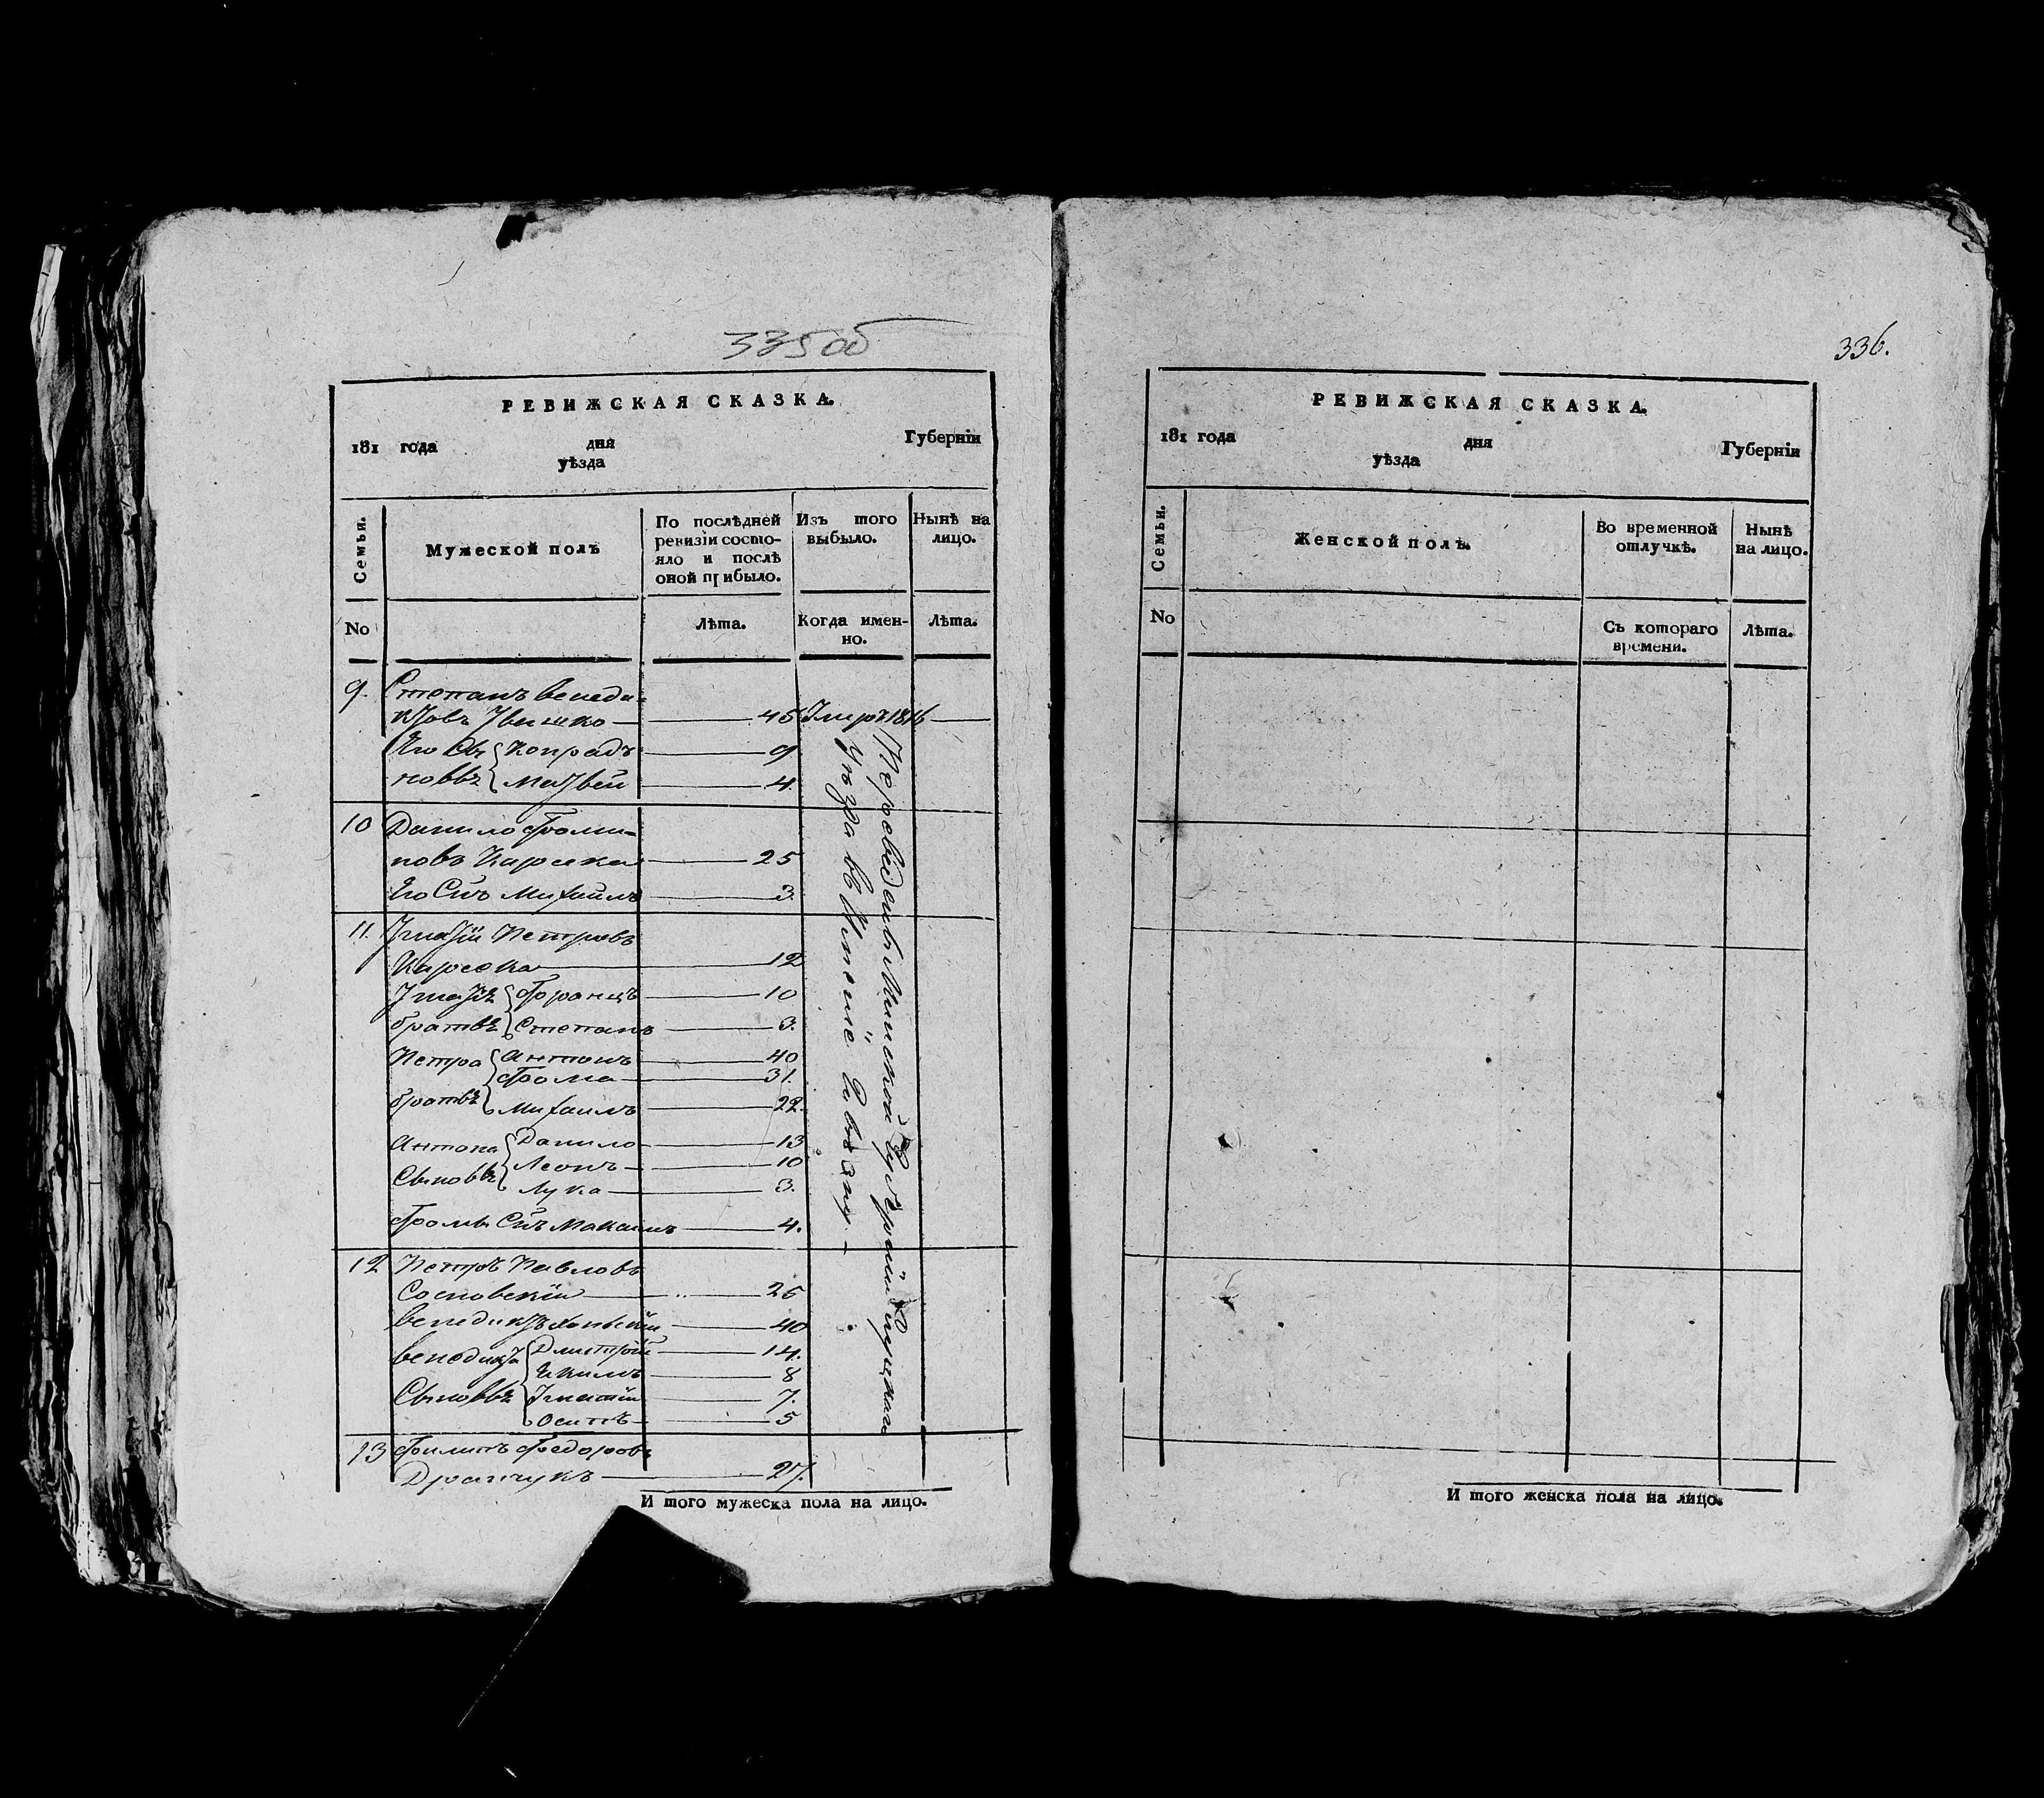 335об
РЕВИЖСКАЯ СКАЗКА.
181 года дня Губерніи
уѣзда
Семьи.
Мужеской полъ
По послѣдней ревизіи состо-
яло и послѣ оной прибыло.
Изъ того выбыло.
Нынѣ на лицо.
No
Лѣта.
Когда имен-
но.
Лѣта.
9. Степанъ Венеди-
ктовъ 45 Умеръ 1816
Его Сы- Конрадъ 9
новья Матвей 4.
10 Данило Фоми-
новъ 25
Его Сынъ Михаилъ 3.
11. Игнатій Петровъ
12
Игнатія Францъ 10
братья Степанъ 3.
Петра Антонъ 40
Фома 31.
братья Михаилъ 22.
Антона Данило 13
Леонъ 10
Сыновья Лука 3.
Фомы Сынъ 4.
12 Петръ Павловъ
Сосновскій 26
Венедиктъ 40
Венедикта Дмитрій 14.
Якимъ 8
Сыновья Игнатій 7.
Осипъ 5
13 Филипъ Федоровъ
27.
Переведены Минской Губерніи
Уѣзда въ Имѣніе
И того мужеска пола на лицо.
336.
РЕВИЖСКАЯ СКАЗКА.
181 года дня Губерніи
уѣзда
Семьи.
Женской полъ.
Во временной отлучкѣ.
Нынѣ на лицо.
No
Съ котораго времени.
Лѣта.
И того женска пола на лицо.